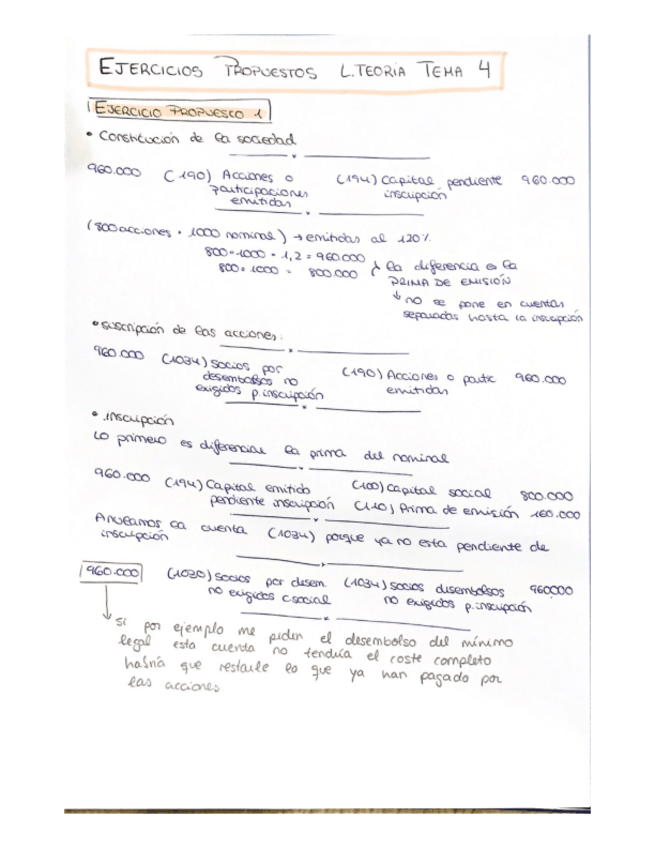 EJERCICIOS PROPUESTOS L.TEORIA TEMA 4
EJERCICIO PROPUESCO 1
• Constitución de la sociedad
960.000 (190) Acciones o participaciones emitidas (194) capital pendiente inscripción 960.000
(800 acciones · 1000 nominal) → emitidas al 120%
800 · 1000 · 1,2 = 960.000
800 · 1000 = 800.000
la diferencia es la PRIMA DE EMISIÓN
↓ no se pone en cuentas separadas hasta la inscripción
• suscripción de las acciones:
960.000 (1034) Socios por desembolsos no exigidos p.inscripción (190) Acciones o partic emitidas 960.000
• inscripción
Lo primero es diferenciar la prima del nominal
960.000 (194) Capital emitido pendiente inscripción (100) capital social 800.000
(110) Prima de emisión 160.000
Anulamos la cuenta (1034) porque ya no esta pendiente de inscripción
960.000 (1030) socios por desem. no exigidos c.social (1034) socios desembolsos no exigidos p.inscripción 960000
si por ejemplo me piden el desembolso del mínimo
legal esta cuenta no tendría el coste completo
habría que restarle lo que ya han pagado por
las acciones